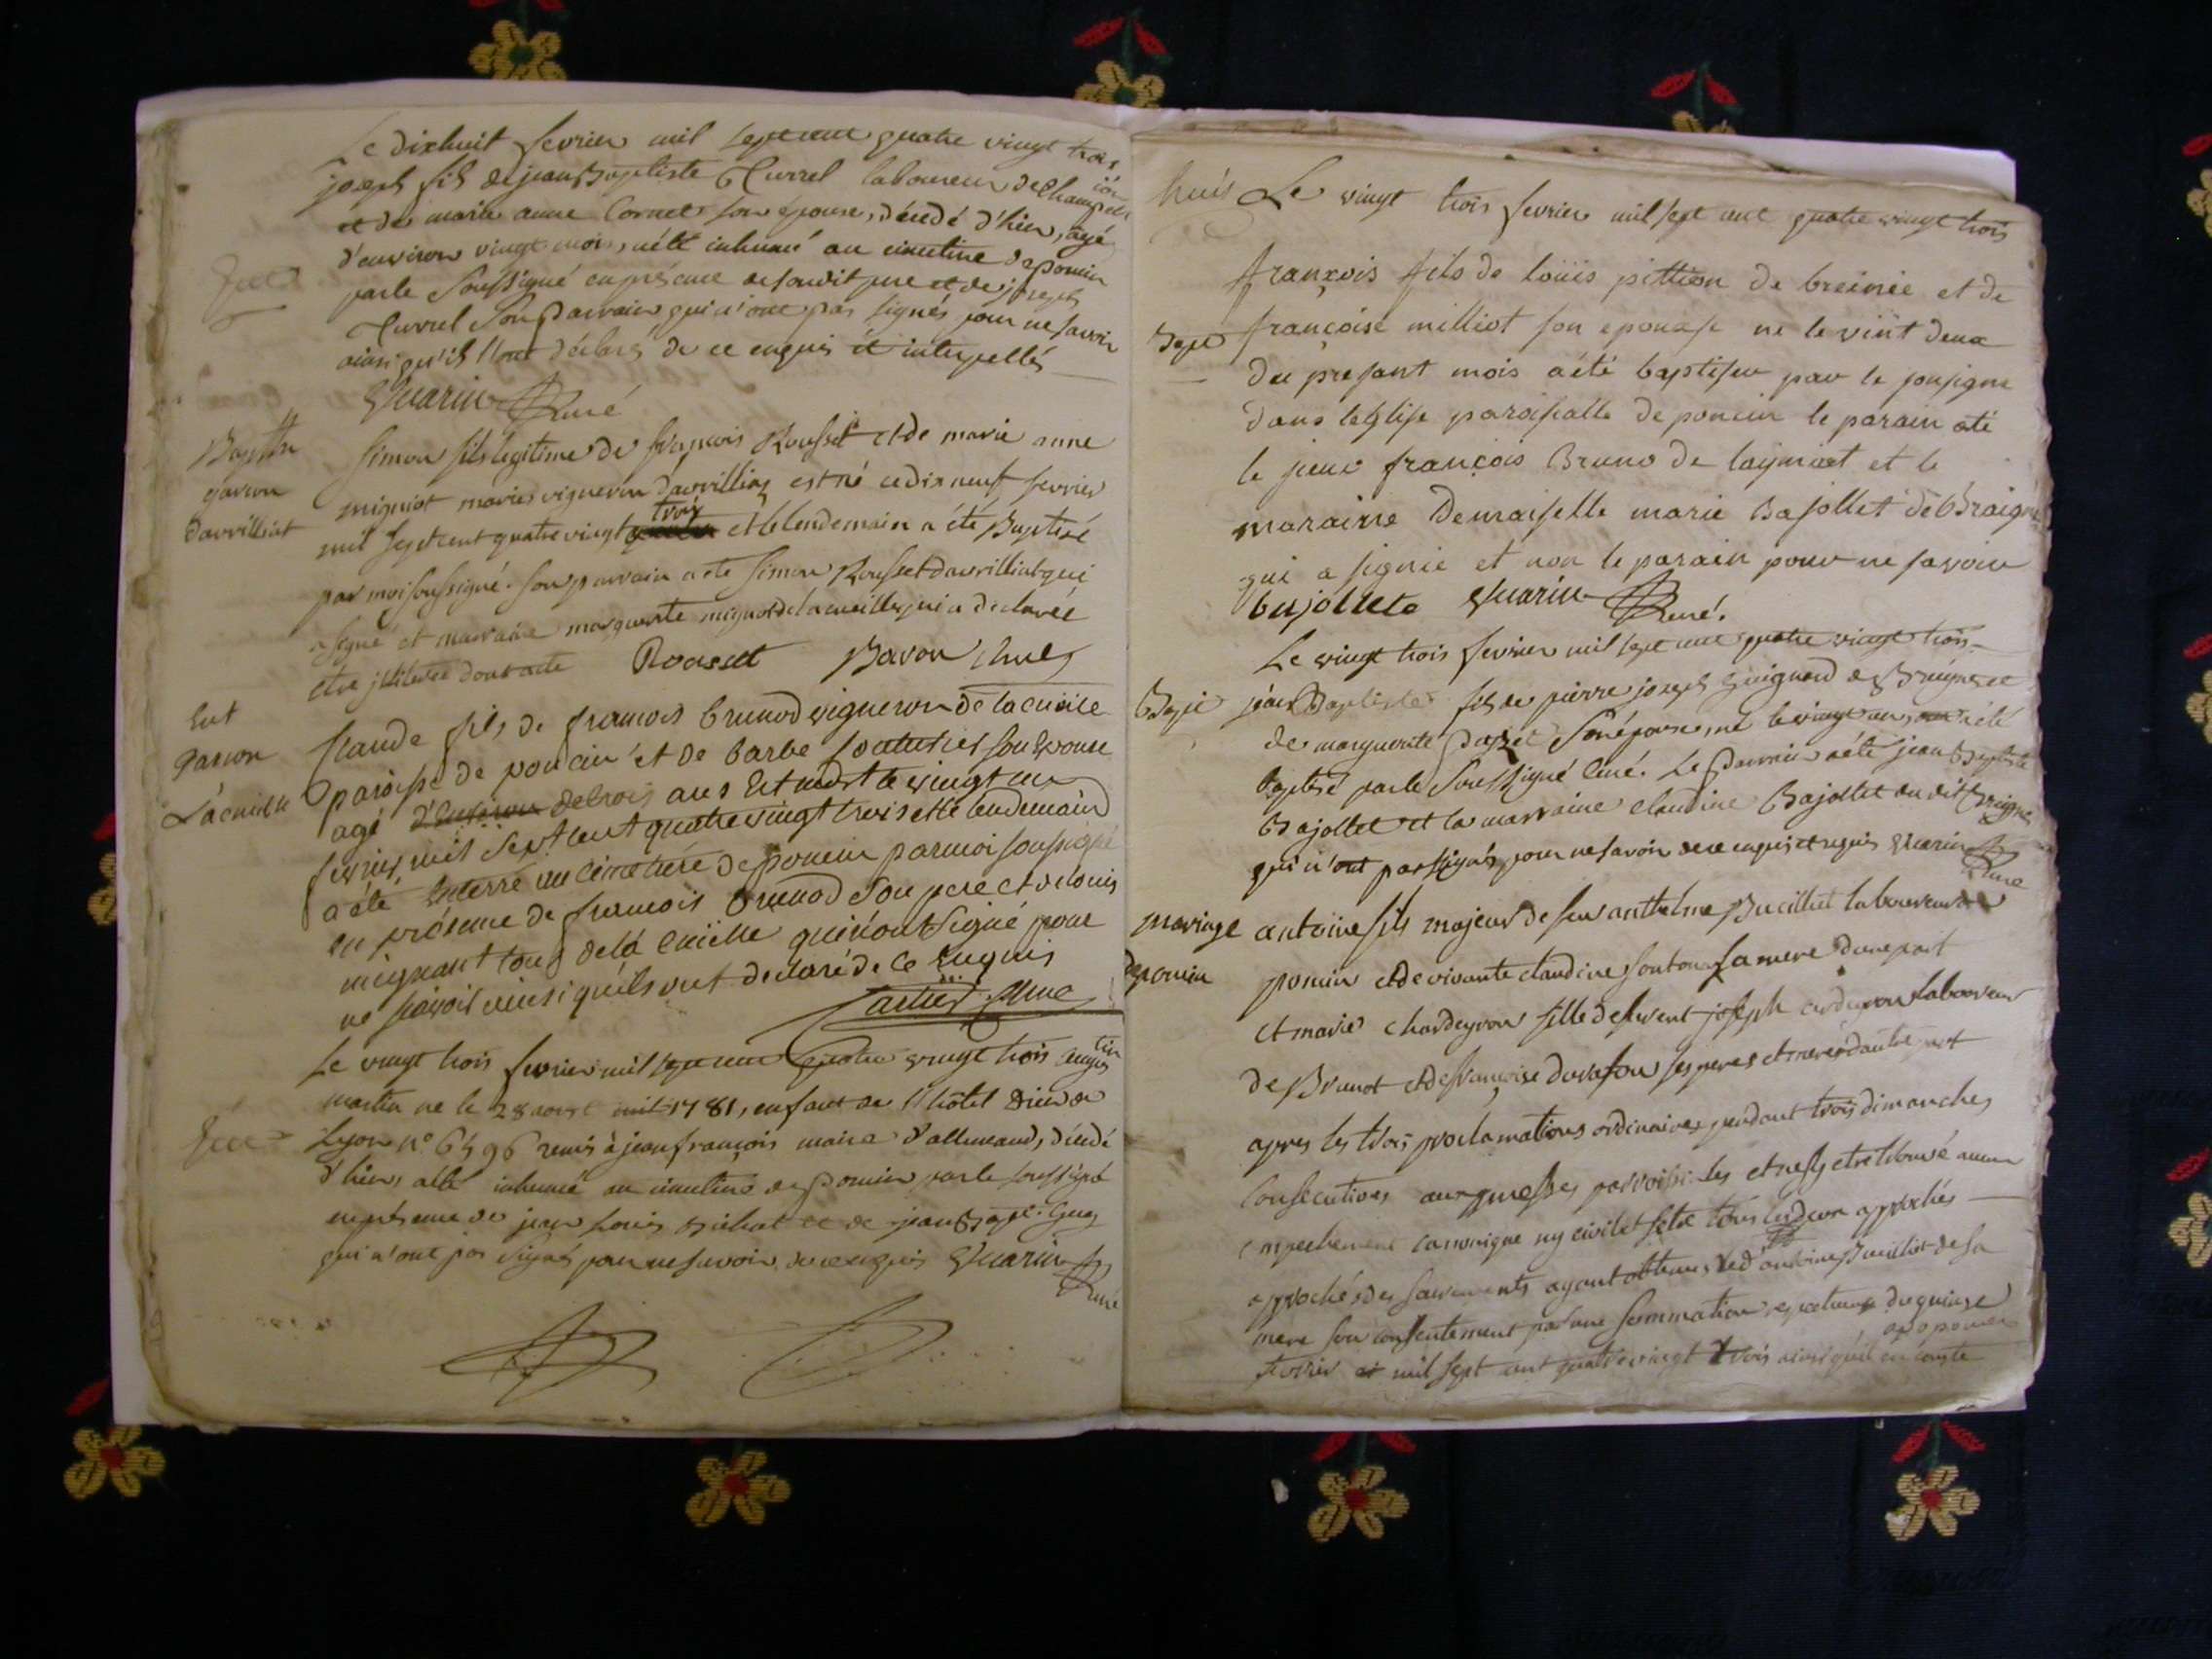 Le dixhuit fevrier mil sept cent quatre vingt trois
joseph fils de jean Baptiste Curvel laboureur de
et de marie anne Cornet son épouse, décédé d'hier, agé
d'environ vingt mois, a été inhumé au cimetière de poncin
par le Soussigné en présence de sondit pere et de joseph
Curvel Son Parrain qui n'ont pas signés pour ne savoir
ainsi qu'ils l'ont déclaré de ce enquis et interpellés
Guarin Curé
Bapteme
garcon
davrilliat
Simon fils legitime de françois Rousset et de marie anne
migniot mariés vigneron davrilliaz est né ce dix neuf fevrier
trois
mil sept cent quatre vingt et le lendemain a été Baptisé
par moi soussigné. son parrain a été Simon Rousset davrilliat qui
a signé et marraine marguerite mignot de lacueille qui a declarée
etre illiterée dont acte Rousset Baron
Ent
garcon
Lacuielle
Claude fils de francois brunod vigneron de la cuielle
paroisse de poncin et de barbe son Epouse
agé d'Environ de trois ans Est mort le vingt un
fevrier mil sept cent quatre vingt trois et le lendemain
a été Enterré au cimetière de poncin par moi soussigné
en présence de francois brunod son pere et de louis
mignant tous de la Cuielle qui n'ont signé pour
ne sçavoir ainsi qu'ils ont declaré de ce Enquis
Le vingt trois fevrier mil sept cent quatre vingt trois
martin né le 28 aoust mil 1781, enfant de l'hôtel Dieu de
Lyon n° 6596 remis à jean françois maire d'allemand, décédé
d'hier, a été inhumé au cimetière de Poncin par le soussigné
en présence de jean louis et de jean Bapt.
qui n'ont pas signés pour ne savoir de ce enquis Guarin
Curé
Le vingt trois fevrier mil sept cent quatre vingt trois
françois fils de loüis pittion de breinie et de
Bapt françoise milliot son epousse ne le vint deux
du presant mois a été baptiseu par le sousigne
dans leglise paroisialle de poncin le parain a été
le sieur françois Bruno de laymiat et le
maraine Demaiselle marie Bajollet de Braigne
qui a signie et non le parain pour ne savoir
bajollete Guarin Curé.
Le vingt trois fevrier mil sept cent quatre vingt trois
Bapt jean Baptiste fils de pierre joseph guignard de Breignes et
de marguerite Son épouse, né le vingt un, a été
baptisé par le Soussigné Curé. Le Parrain a été jean Baptiste
Bajollet et la marraine claudine Bajollet dudit Breignes
qui n'ont pas signés pour ne savoir de ce enquis et requis Guarin
Curé
mariage
de poncin
antoine fils majeur de feu anthelme Bucilliet laboureur de
poncin et de vivante claudine Sonton sa mere dune part
et marie chardeyron fille de joseph laboureur
de Brunot et de françoise ses peres et meres dautre part
apres les trois proclamations ordinaires pendant trois dimanches
Consecutives aux messes parroissiales et ne sy etre trouvé aucun
empechement canonique ny civil et setre tous les deux approchés
approchés des sacrements ayant obtenu led antoine Bucilliet de sa
mere son consentement par une sommation respectueuse du quinze
fevrier mil sept cent quatre vingt trois ainsi qu'il en conste